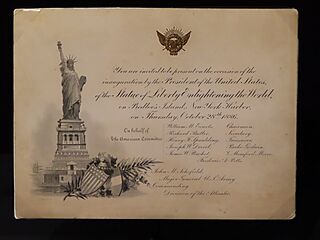 You are invited to be present on the occasion of the
inauguration by the President of the United States,
of the Statue of Liberty Enlightening the World,
on Bedloe's Island, New York Harbor,
on Thursday, October 28th 1886.
On behalf of
the American Committee
William M. Evarts, Chairman
Richard Butler, Secretary
Henry F. Spaulding, Treasurer
Joseph W. Drexel, Parke Godwin
James W. Pinchot, V. Mumford Moore
Frederick A. Potts
John M. Schofield
Major General U.S. Army
Commanding
Division of the Atlantic